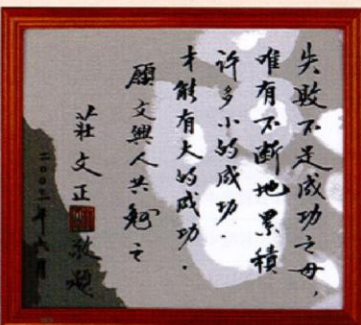 失敗不是成功之母，
唯有不斷地累積
許多小的成功．
才能有大的成功．
願文興人共勉之
莊文正 敬題
二〇〇二年六月